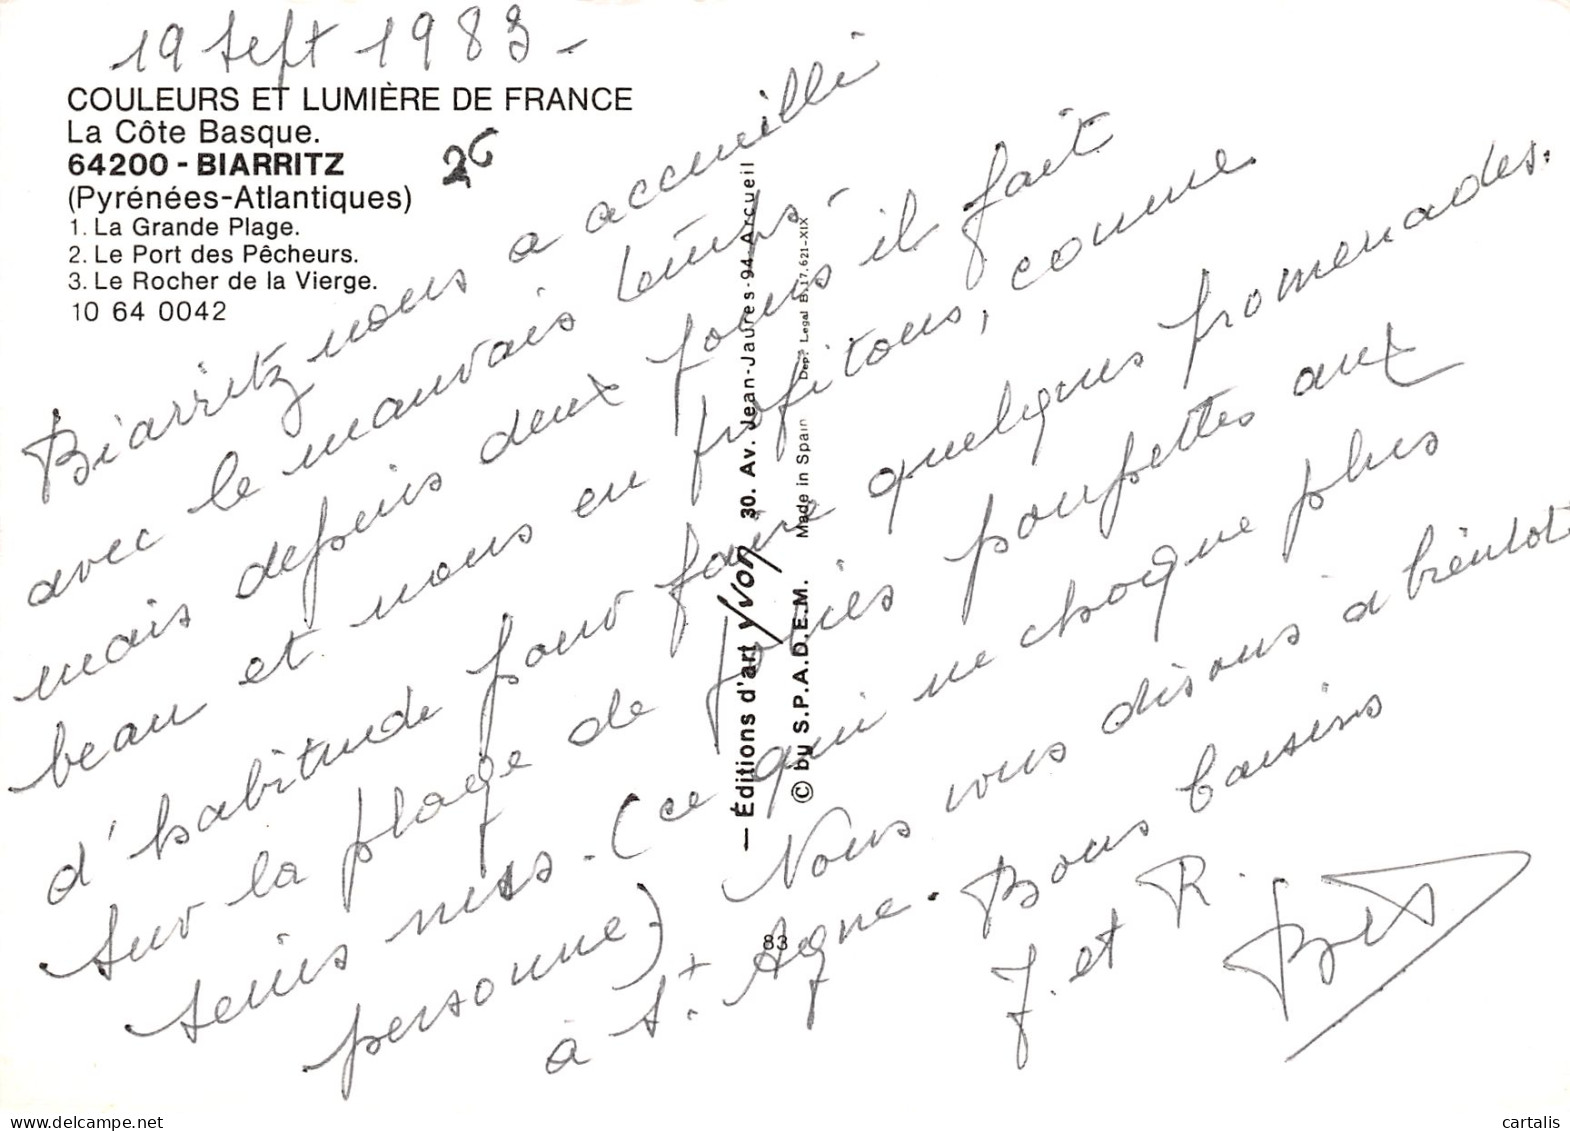 19 Sept 1983 -
COULEURS ET LUMIÈRE DE FRANCE
La Côte Basque.
64200 - BIARRITZ
(Pyrénées-Atlantiques)
1. La Grande Plage.
2. Le Port des Pêcheurs.
3. Le Rocher de la Vierge.
10 64 0042
Biarritz nous a accueilli
avec le mauvais temps -
mais depuis deux jours il fait
beau et nous en profitons, comme
d'habitude pour faire quelques promenades.
sur la plage de jolies poupettes aux
seins nus - (ce qui ne choque plus
personne) Nous vous disons à bientôt
à St. Agne. Bons baisers
J. et R.
— Éditions d'art Yvon 30. Av. Jean-Jaures-94-Arcueil
© by S.P.A.D.E.M. Made in Spain Dep. Legal B. 17.621-XIX
83
cartalis